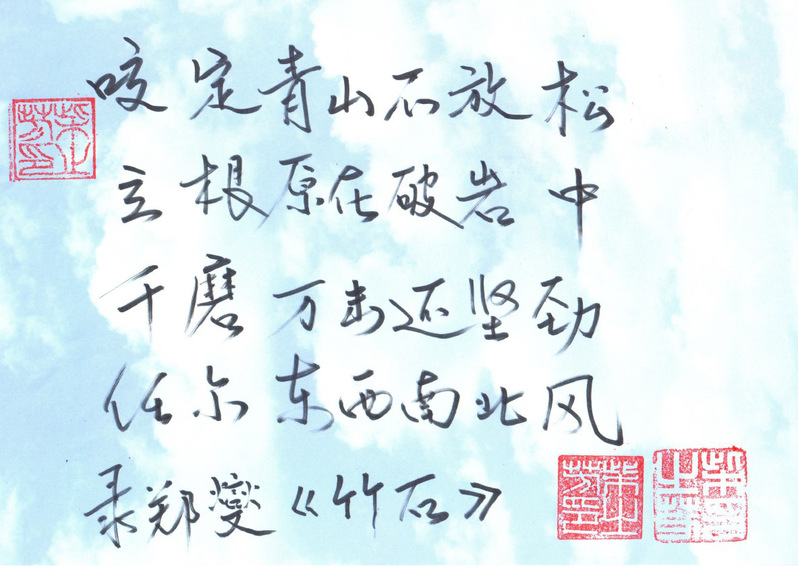 咬定青山不放松
立根原在破岩中
千磨万击还坚劲
任尔东西南北风
录郑燮《竹石》